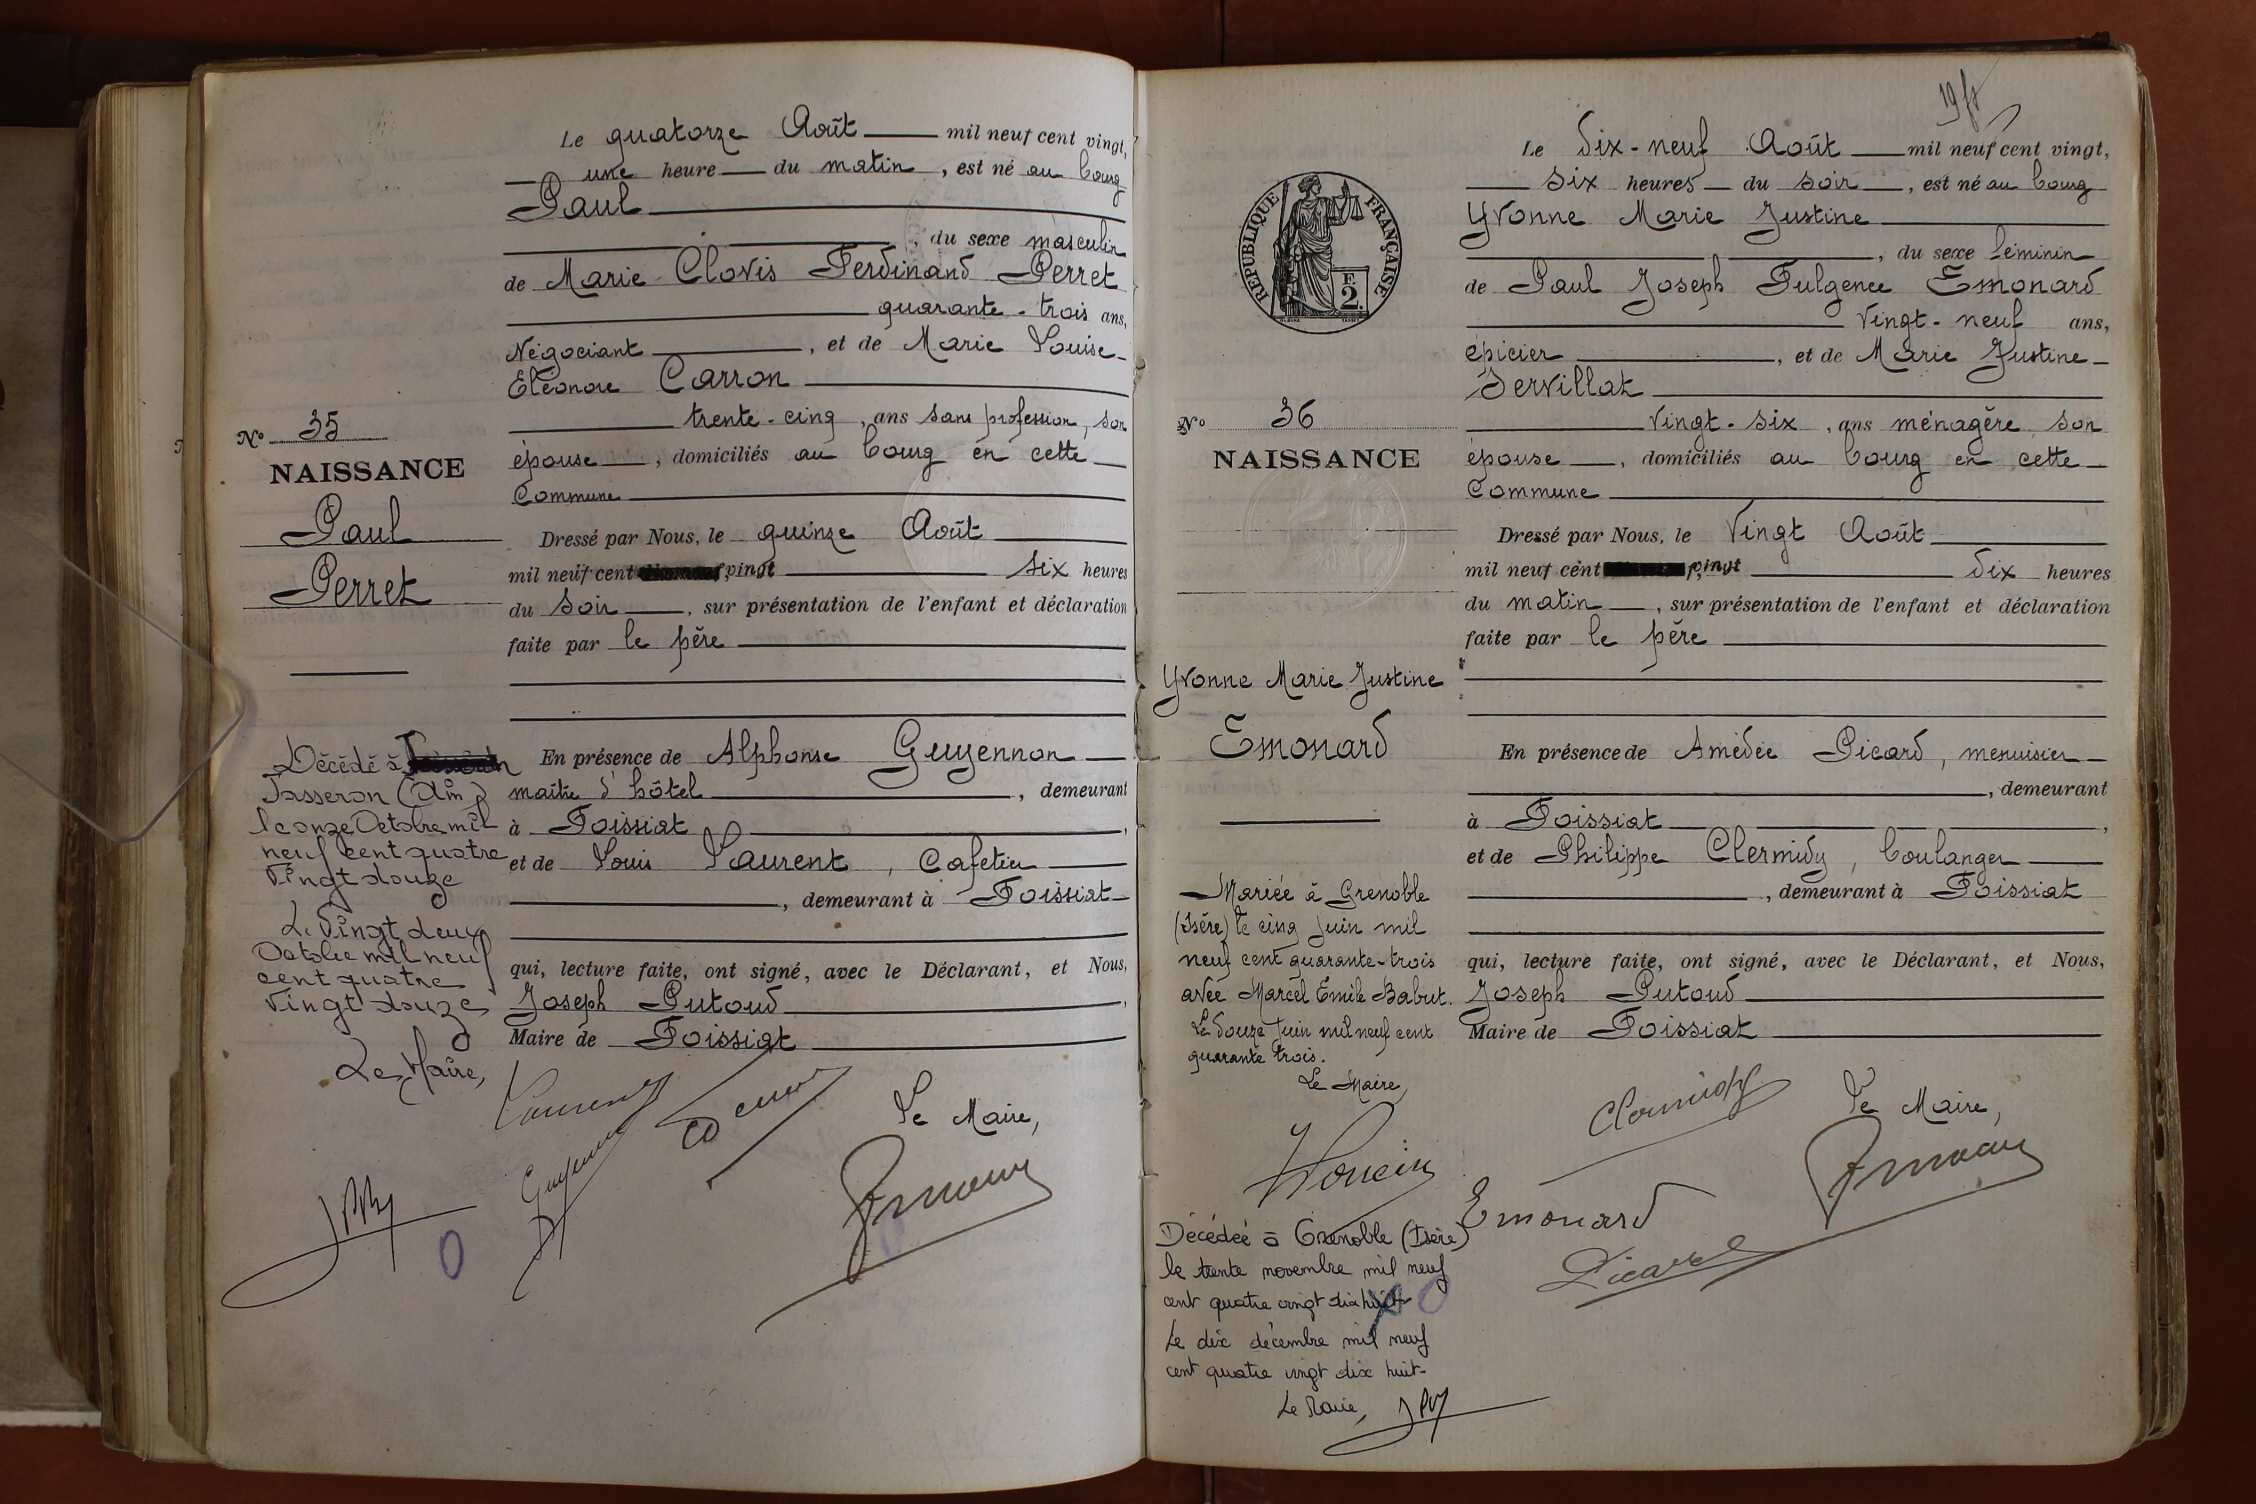 Le quatorze Août mil neuf cent vingt,
une heure du matin, est né au bourg
Paul
, du sexe masculin
de Marie Clovis Ferdinand Perret
quarante-trois ans,
Négociant, et de Marie Louise
Eléonore Carron
trente-cinq, ans sans profession, son
épouse, domiciliés au bourg en cette
Commune
Dressé par Nous, le quinze Août
mil neuf cent vingt six heures
du soir, sur présentation de l'enfant et déclaration
faite par le père
En présence de Alphonse Guyennon
maître d'hôtel, demeurant
à Foissiat,
et de Louis Laurent, Cafetier
, demeurant à Foissiat
qui, lecture faite, ont signé, avec le Déclarant, et Nous,
Joseph Putoud,
Maire de Foissiat
Le Maire,
Laurent
Guyennon
No 35
NAISSANCE
Paul
Perret
Décédé à
Jasseron (Ain)
le onze Octobre mil
neuf cent quatre
vingt douze
Le vingt deux
Octobre mil neuf
cent quatre
vingt douze
Le Maire,
Le dix-neuf Août mil neuf cent vingt,
six heures du soir, est né au bourg
Yvonne Marie Justine
, du sexe féminin
de Paul Joseph Fulgence Emonard
vingt-neuf ans,
épicier, et de Marie Justine
Servillat
vingt-six, ans ménagère son
épouse, domiciliés au bourg en cette
Commune
Dressé par Nous, le Vingt Août
mil neuf cent vingt dix heures
du matin, sur présentation de l'enfant et déclaration
faite par le père
En présence de Amédée Picard, menuisier
, demeurant
à Foissiat,
et de Philippe Clermidy, boulanger
, demeurant à Foissiat
qui, lecture faite, ont signé, avec le Déclarant, et Nous,
Joseph Putoud
Maire de Foissiat
Le Maire,
Clermidy
Emonard
Picard
RÉPUBLIQUE FRANÇAISE
F.
2
No 36
NAISSANCE
Yvonne Marie Justine
Emonard
Mariée à Grenoble
(Isère) le cinq Juin mil
neuf cent quarante-trois
avec Marcel Emile Babut.
Le douze Juin mil neuf cent
quarante trois.
Le Maire,
Décédée à Grenoble (Isère)
le trente novembre mil neuf
cent quatre vingt dix huit
Le dix décembre mil neuf
cent quatre vingt dix huit-
Le Maire,